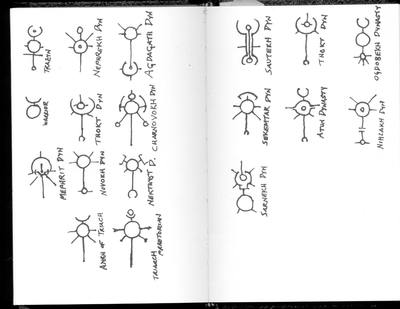 MEPHRIT DYN
WARRIOR
TRAZYN
TRIARCH
NOVOKH DYN
THOKT DYN
NEPHREKH DYN
TRIARCH PRAETORIAN
NEKTHYST D.
CHARNOVOKH DYN
AGDAGATH DYN
SARNEKH DYN
SEKEMTAR DYN
SAUTEKH DYN
ATUN DYNASTY
THOKT DYN
NIHILAKH DYN
OGDOBEKH DYNASTY